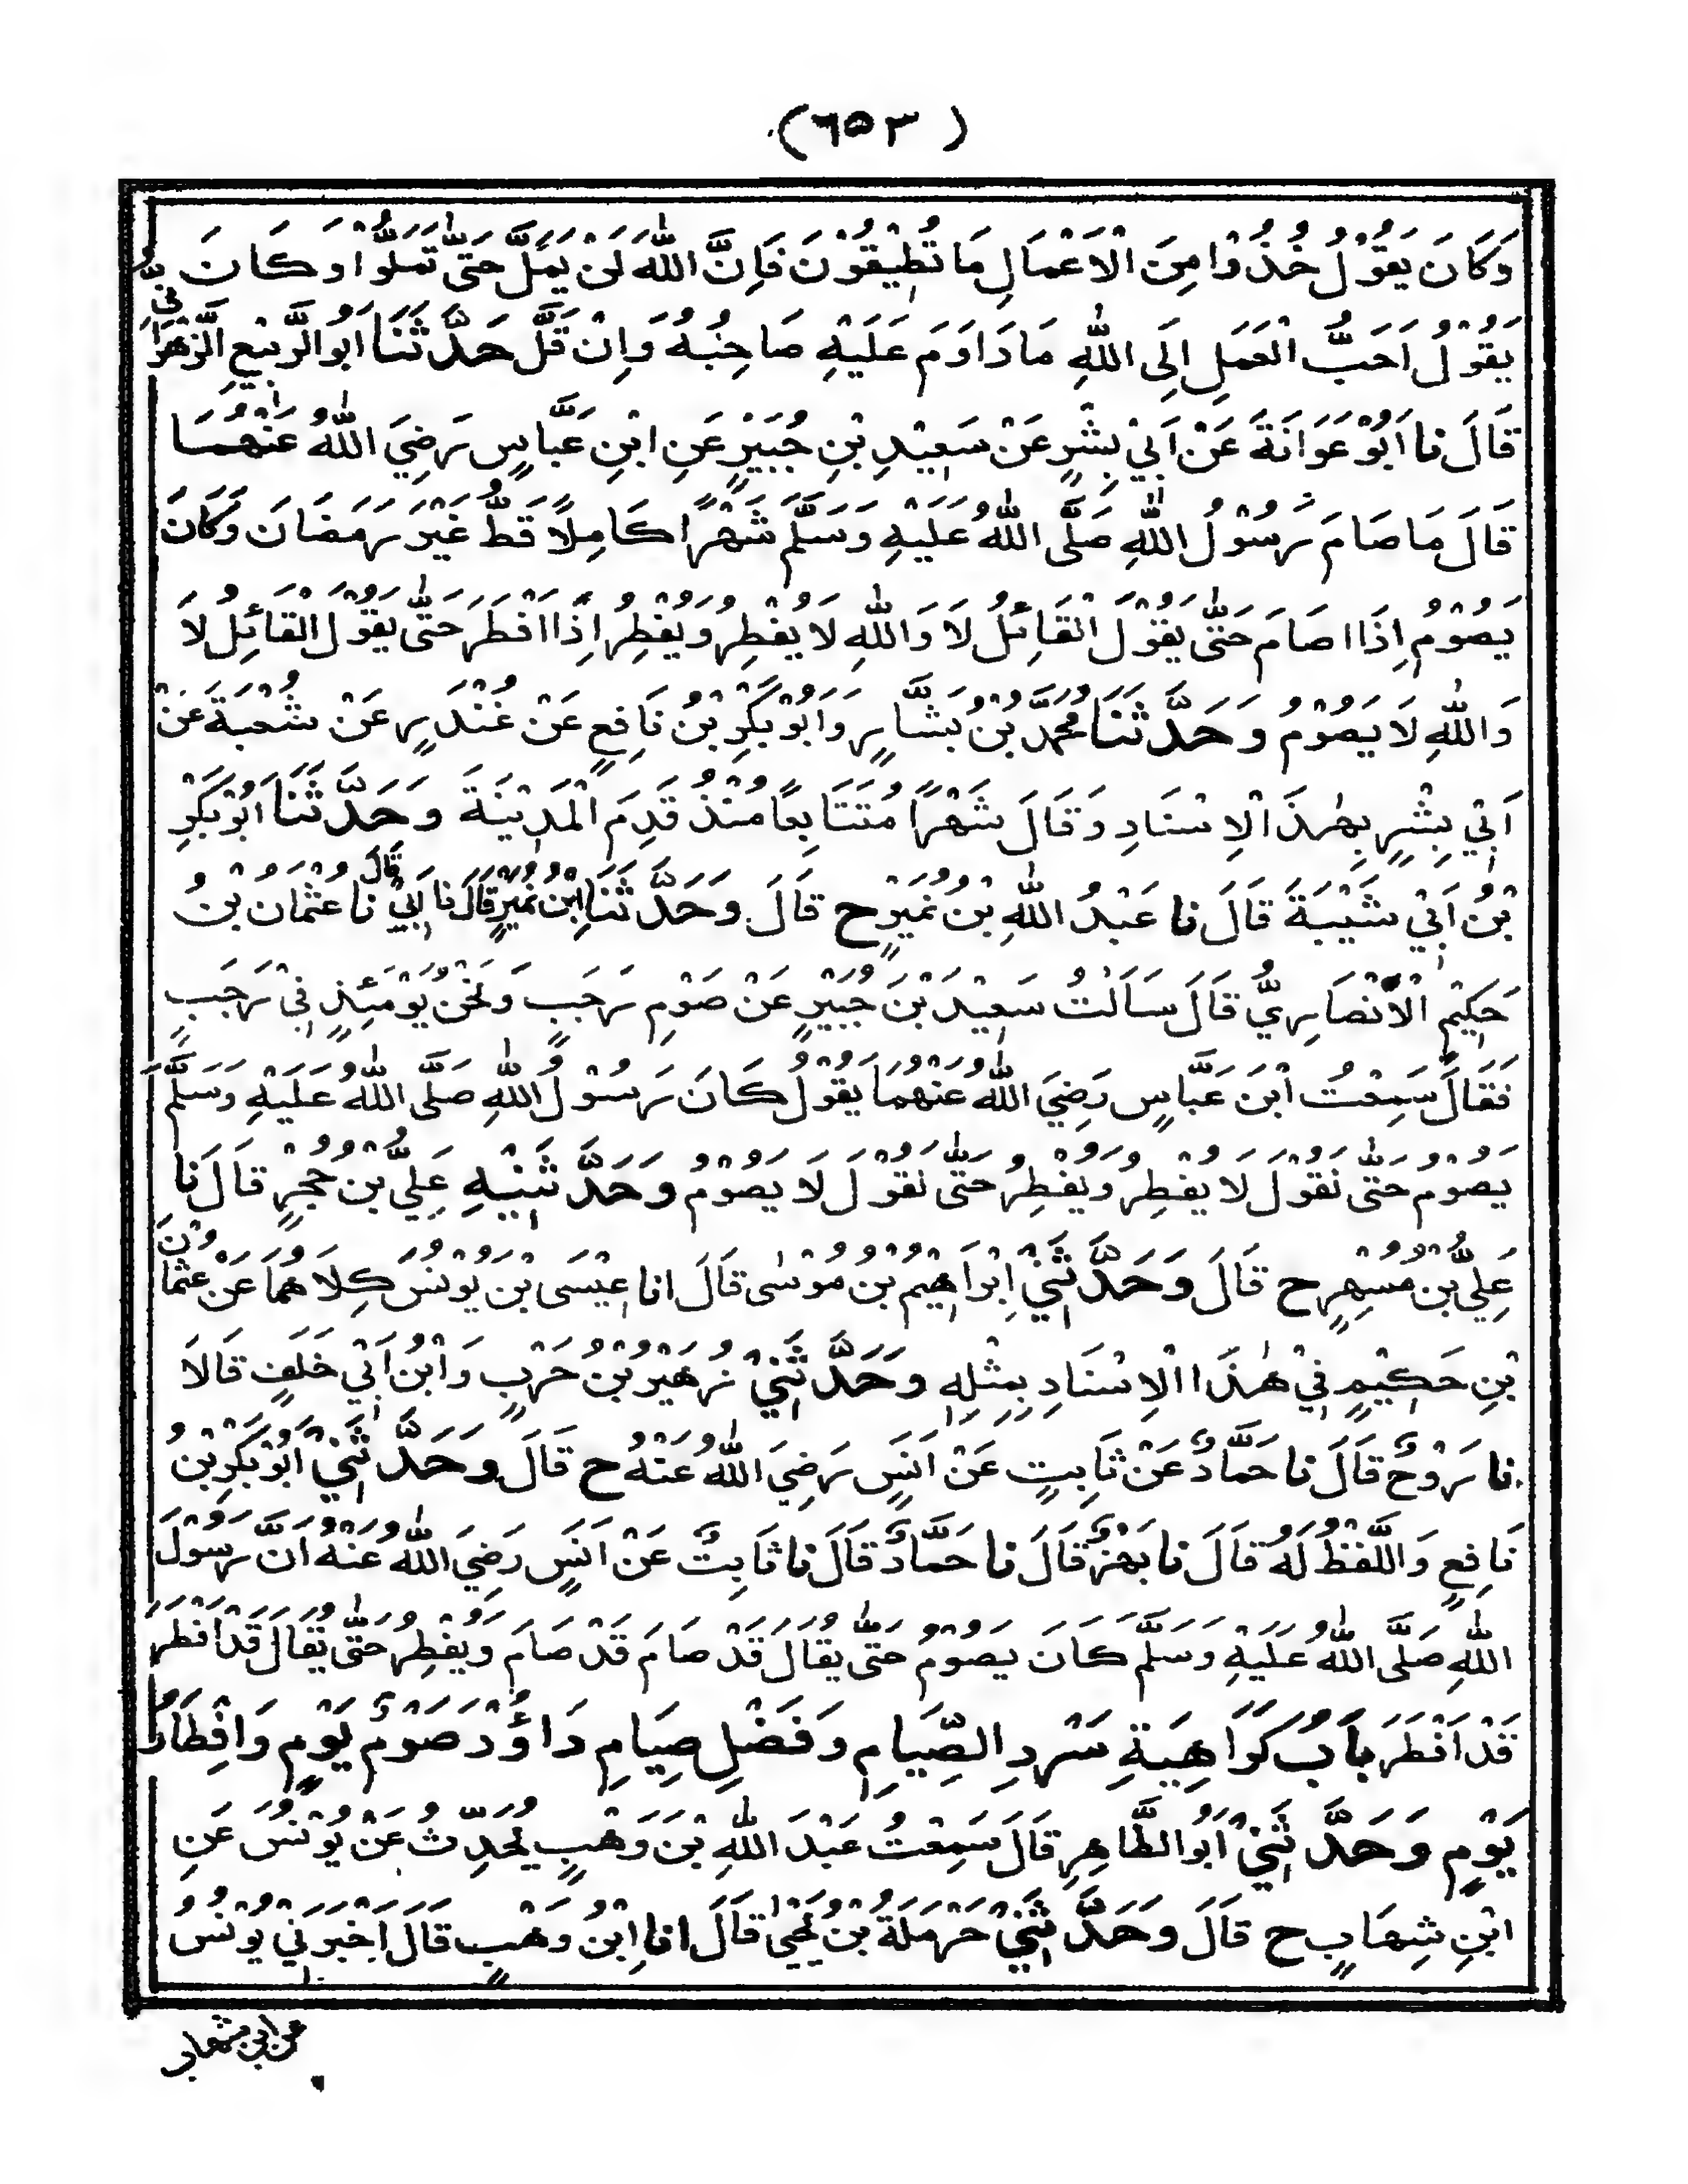 (٦٥٣)
وَكَانَ يَقُوْلُ خُذُوْا مِنَ الْاَعْمَالِ مَا تُطِيْقُوْنَ فَاِنَّ اللّٰهَ لَنْ يَمَلَّ حَتّٰى تَمَلُّوْا وَكَانَ
يَقُوْلُ اَحَبُّ الْعَمَلِ اِلَى اللّٰهِ مَا دَاوَمَ عَلَيْهِ صَاحِبُهُ وَاِنْ قَلَّ حَدَّثَنَا اَبُو الرَّبِيْعِ الزَّهْرَانِيُّ
قَالَ نا اَبُوْ عَوَانَةَ عَنْ اَبِيْ بِشْرٍ عَنْ سَعِيْدِ بْنِ جُبَيْرٍ عَنِ ابْنِ عَبَّاسٍ رَضِيَ اللّٰهُ عَنْهُمَا
قَالَ مَا صَامَ رَسُوْلُ اللّٰهِ صَلَّى اللّٰهُ عَلَيْهِ وَسَلَّمَ شَهْرًا كَامِلًا قَطُّ غَيْرَ رَمَضَانَ وَكَانَ
يَصُوْمُ اِذَا صَامَ حَتّٰى يَقُوْلَ الْقَائِلُ لَا وَاللّٰهِ لَا يُفْطِرُ وَيُفْطِرُ اِذَا اَفْطَرَ حَتّٰى يَقُوْلَ الْقَائِلُ لَا
وَاللّٰهِ لَا يَصُوْمُ وَحَدَّثَنَا مُحَمَّدُ بْنُ بَشَّارٍ وَاَبُوْ بَكْرِ بْنُ نَافِعٍ عَنْ غُنْدَرٍ عَنْ شُعْبَةَ عَنْ
اَبِيْ بِشْرٍ بِهٰذَا الْاِسْنَادِ وَقَالَ شَهْرًا مُتَتَابِعًا مُنْذُ قَدِمَ الْمَدِيْنَةَ وَحَدَّثَنَا اَبُوْ بَكْرِ
بْنُ اَبِيْ شَيْبَةَ قَالَ نا عَبْدُ اللّٰهِ بْنُ نُمَيْرٍ ح قَالَ وَحَدَّثَنَا ابْنُ نُمَيْرٍ قَالَ نا اَبِيْ قَالَ نا عُثْمَانُ بْنُ
حَكِيْمٍ الْاَنْصَارِيُّ قَالَ سَاَلْتُ سَعِيْدَ بْنَ جُبَيْرٍ عَنْ صَوْمِ رَجَبٍ وَنَحْنُ يَوْمَئِذٍ فِيْ رَجَبٍ
فَقَالَ سَمِعْتُ ابْنَ عَبَّاسٍ رَضِيَ اللّٰهُ عَنْهُمَا يَقُوْلُ كَانَ رَسُوْلُ اللّٰهِ صَلَّى اللّٰهُ عَلَيْهِ وَسَلَّمَ
يَصُوْمُ حَتّٰى نَقُوْلَ لَا يُفْطِرُ وَيُفْطِرُ حَتّٰى نَقُوْلَ لَا يَصُوْمُ وَحَدَّثَنِيْهِ عَلِيُّ بْنُ حُجْرٍ قَالَ نا
عَلِيُّ بْنُ مُسْهِرٍ ح قَالَ وَحَدَّثَنِيْ اِبْرَاهِيْمُ بْنُ مُوْسٰى قَالَ انا عِيْسَى بْنُ يُوْنُسَ كِلَاهُمَا عَنْ عُثْمَانَ
بْنِ حَكِيْمٍ فِيْ هٰذَا الْاِسْنَادِ بِمِثْلِهِ وَحَدَّثَنِيْ زُهَيْرُ بْنُ حَرْبٍ وَابْنُ اَبِيْ خَلَفٍ قَالَا
نا رَوْحٌ قَالَ نا حَمَّادٌ عَنْ ثَابِتٍ عَنْ اَنَسٍ رَضِيَ اللّٰهُ عَنْهُ ح قَالَ وَحَدَّثَنِيْ اَبُوْ بَكْرِ بْنُ
نَافِعٍ وَاللَّفْظُ لَهُ قَالَ نا بَهْزٌ قَالَ نا حَمَّادٌ قَالَ نا ثَابِتٌ عَنْ اَنَسٍ رَضِيَ اللّٰهُ عَنْهُ اَنَّ رَسُوْلَ
اللّٰهِ صَلَّى اللّٰهُ عَلَيْهِ وَسَلَّمَ كَانَ يَصُوْمُ حَتّٰى يُقَالَ قَدْ صَامَ قَدْ صَامَ وَيُفْطِرُ حَتّٰى يُقَالَ قَدْ اَفْطَرَ
قَدْ اَفْطَرَ بَابُ كَرَاهِيَةِ سَرْدِ الصِّيَامِ وَفَضْلِ صِيَامِ دَاوُدَ صَوْمُ يَوْمٍ وَاِفْطَارُ
يَوْمٍ وَحَدَّثَنِيْ اَبُو الطَّاهِرِ قَالَ سَمِعْتُ عَبْدَ اللّٰهِ بْنَ وَهْبٍ يُحَدِّثُ عَنْ يُوْنُسَ عَنِ
ابْنِ شِهَابٍ ح قَالَ وَحَدَّثَنِيْ حَرْمَلَةُ بْنُ يَحْيٰى قَالَ انا ابْنُ وَهْبٍ قَالَ اَخْبَرَنِيْ يُوْنُسُ
عن ابن شهاب